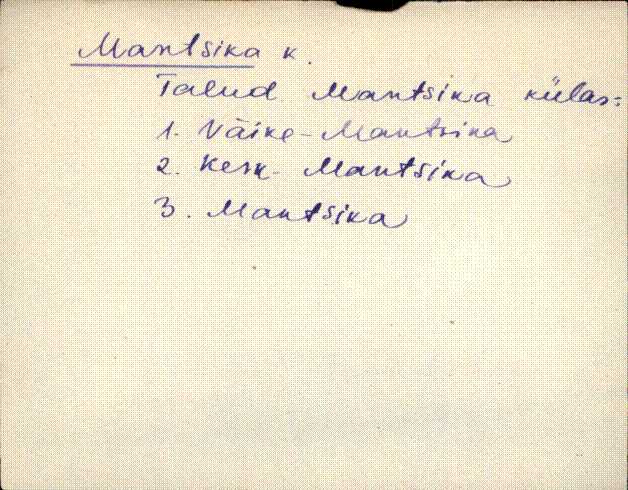 Mantsika k.
Talud Mantsika külas:
1. Väike-Mantsika
2. Kesk-Mantsika
3. Mantsika